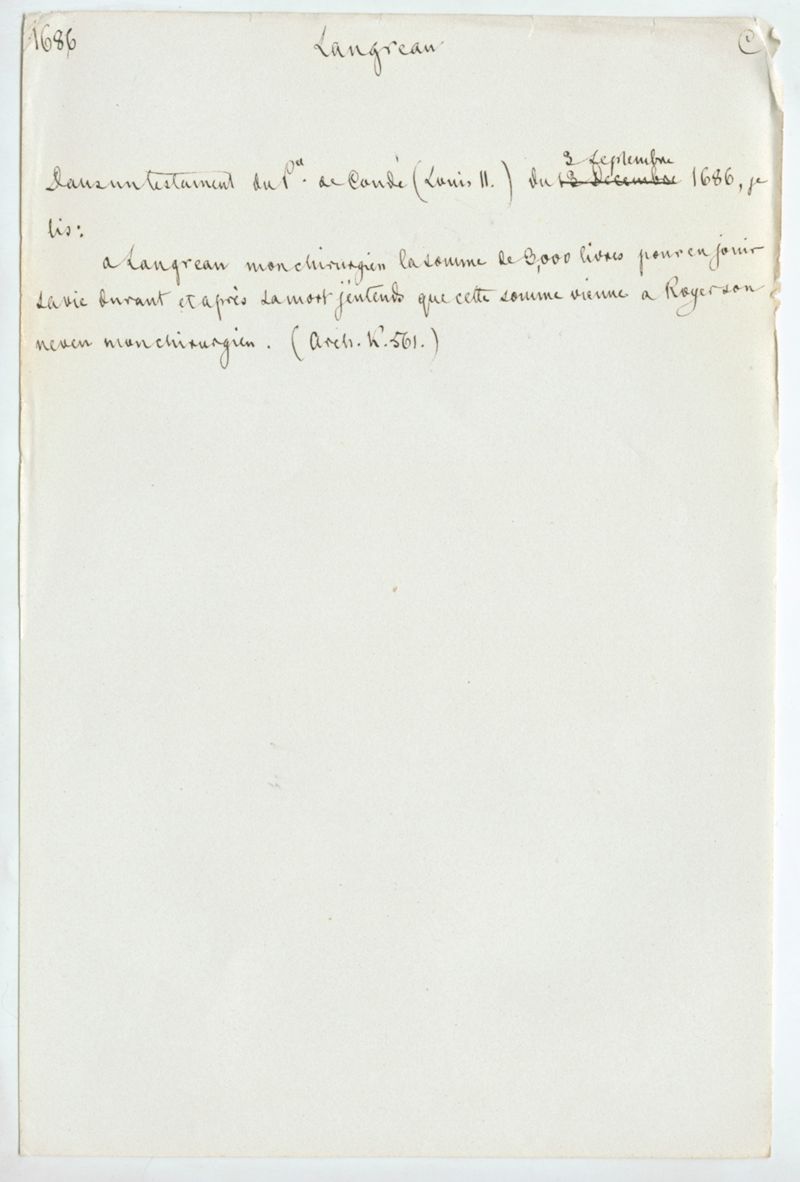 1686 Langreau C
3 Septembre
Dans un testament du Pce. de Condé (Louis II.) du 13 Décembre 1686, je
lis:
a Langreau mon chirurgien la somme de 3,000 livres pour en jouir
sa vie durant et après sa mort j'entends que cette somme vienne a Royer son
neveu mon chirurgien. (Arch. K. 561.)